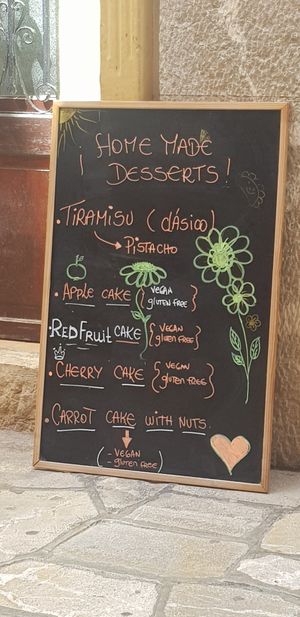 ¡ HOME MADE
DESSERTS !
· TIRAMISU ( clásico )
→ PISTACHO
· APPLE CAKE { VEGAN
gluten FREE }
· RED FRuit CAKE { VEGAN
gluten FREE }
· CHERRY CAKE { VEGAN
gluten FREE }
· CARROT CAKE WITH NUTS.
( - VEGAN
- gluten FREE )